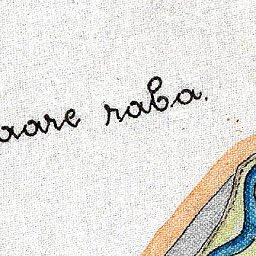 aare raba.